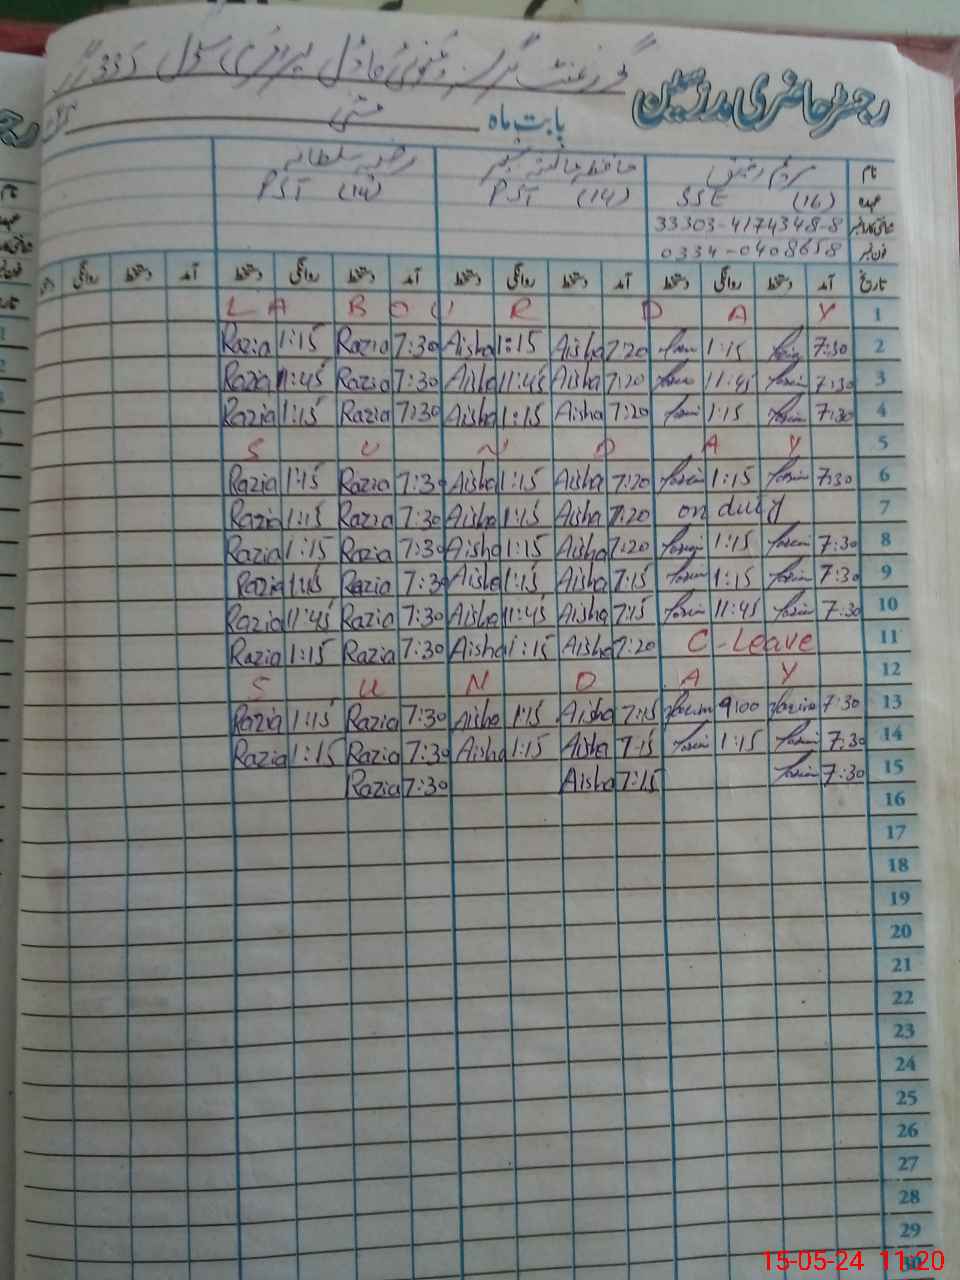 رجسٹر حاضری مدرسین
گورنمنٹ گرلز ماڈل پرائمری سکول 335
بابت ماہ مئی
نام
PST (14) PST (14) SSE (16) عہدہ
33303-4174348-8
0334-0408658
دستخط روانگی دستخط آمد دستخط روانگی دستخط آمد دستخط روانگی دستخط آمد تاریخ
L A B O U R D A Y 1
Razia 1:15 Razia 7:30 Aisha 1:15 Aisha 7:20 1:15 7:30 2
Razia 11:45 Razia 7:30 Aisha 11:45 Aisha 7:20 11:45 7:30 3
Razia 1:15 Razia 7:30 Aisha 1:15 Aisha 7:20 1:15 7:30 4
S U N D A Y 5
Razia 1:15 Razia 7:30 Aisha 1:15 Aisha 7:20 1:15 7:30 6
Razia 1:15 Razia 7:30 Aisha 1:15 Aisha 7:20 on duty 7
Razia 1:15 Razia 7:30 Aisha 1:15 Aisha 7:20 1:15 7:30 8
Razia 1:15 Razia 7:30 Aisha 1:15 Aisha 7:15 1:15 7:30 9
Razia 11:45 Razia 7:30 Aisha 11:45 Aisha 7:15 11:45 7:30 10
Razia 1:15 Razia 7:30 Aisha 1:15 Aisha 7:20 C-Leave 11
S U N D A Y 12
Razia 1:15 Razia 7:30 Aisha 1:15 Aisha 7:15 9:00 7:30 13
Razia 1:15 Razia 7:30 Aisha 1:15 Aisha 7:15 1:15 7:30 14
Razia 7:30 Aisha 7:15 7:30 15
16
17
18
19
20
21
22
23
24
25
26
27
28
29
30
15-05-24 11:20